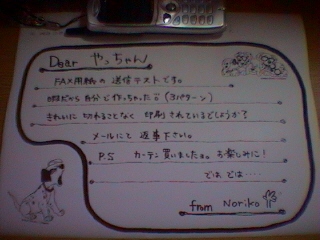 Dear やっちゃん
FAX用紙の送信テストです。
暇だから自分で作っちゃった (3パターン)
きれいに切れることなく印刷されているでしょうか?
メールにて返事下さい。
P.S カーテン買いましたョ。お楽しみに!
では、では…
from Noriko